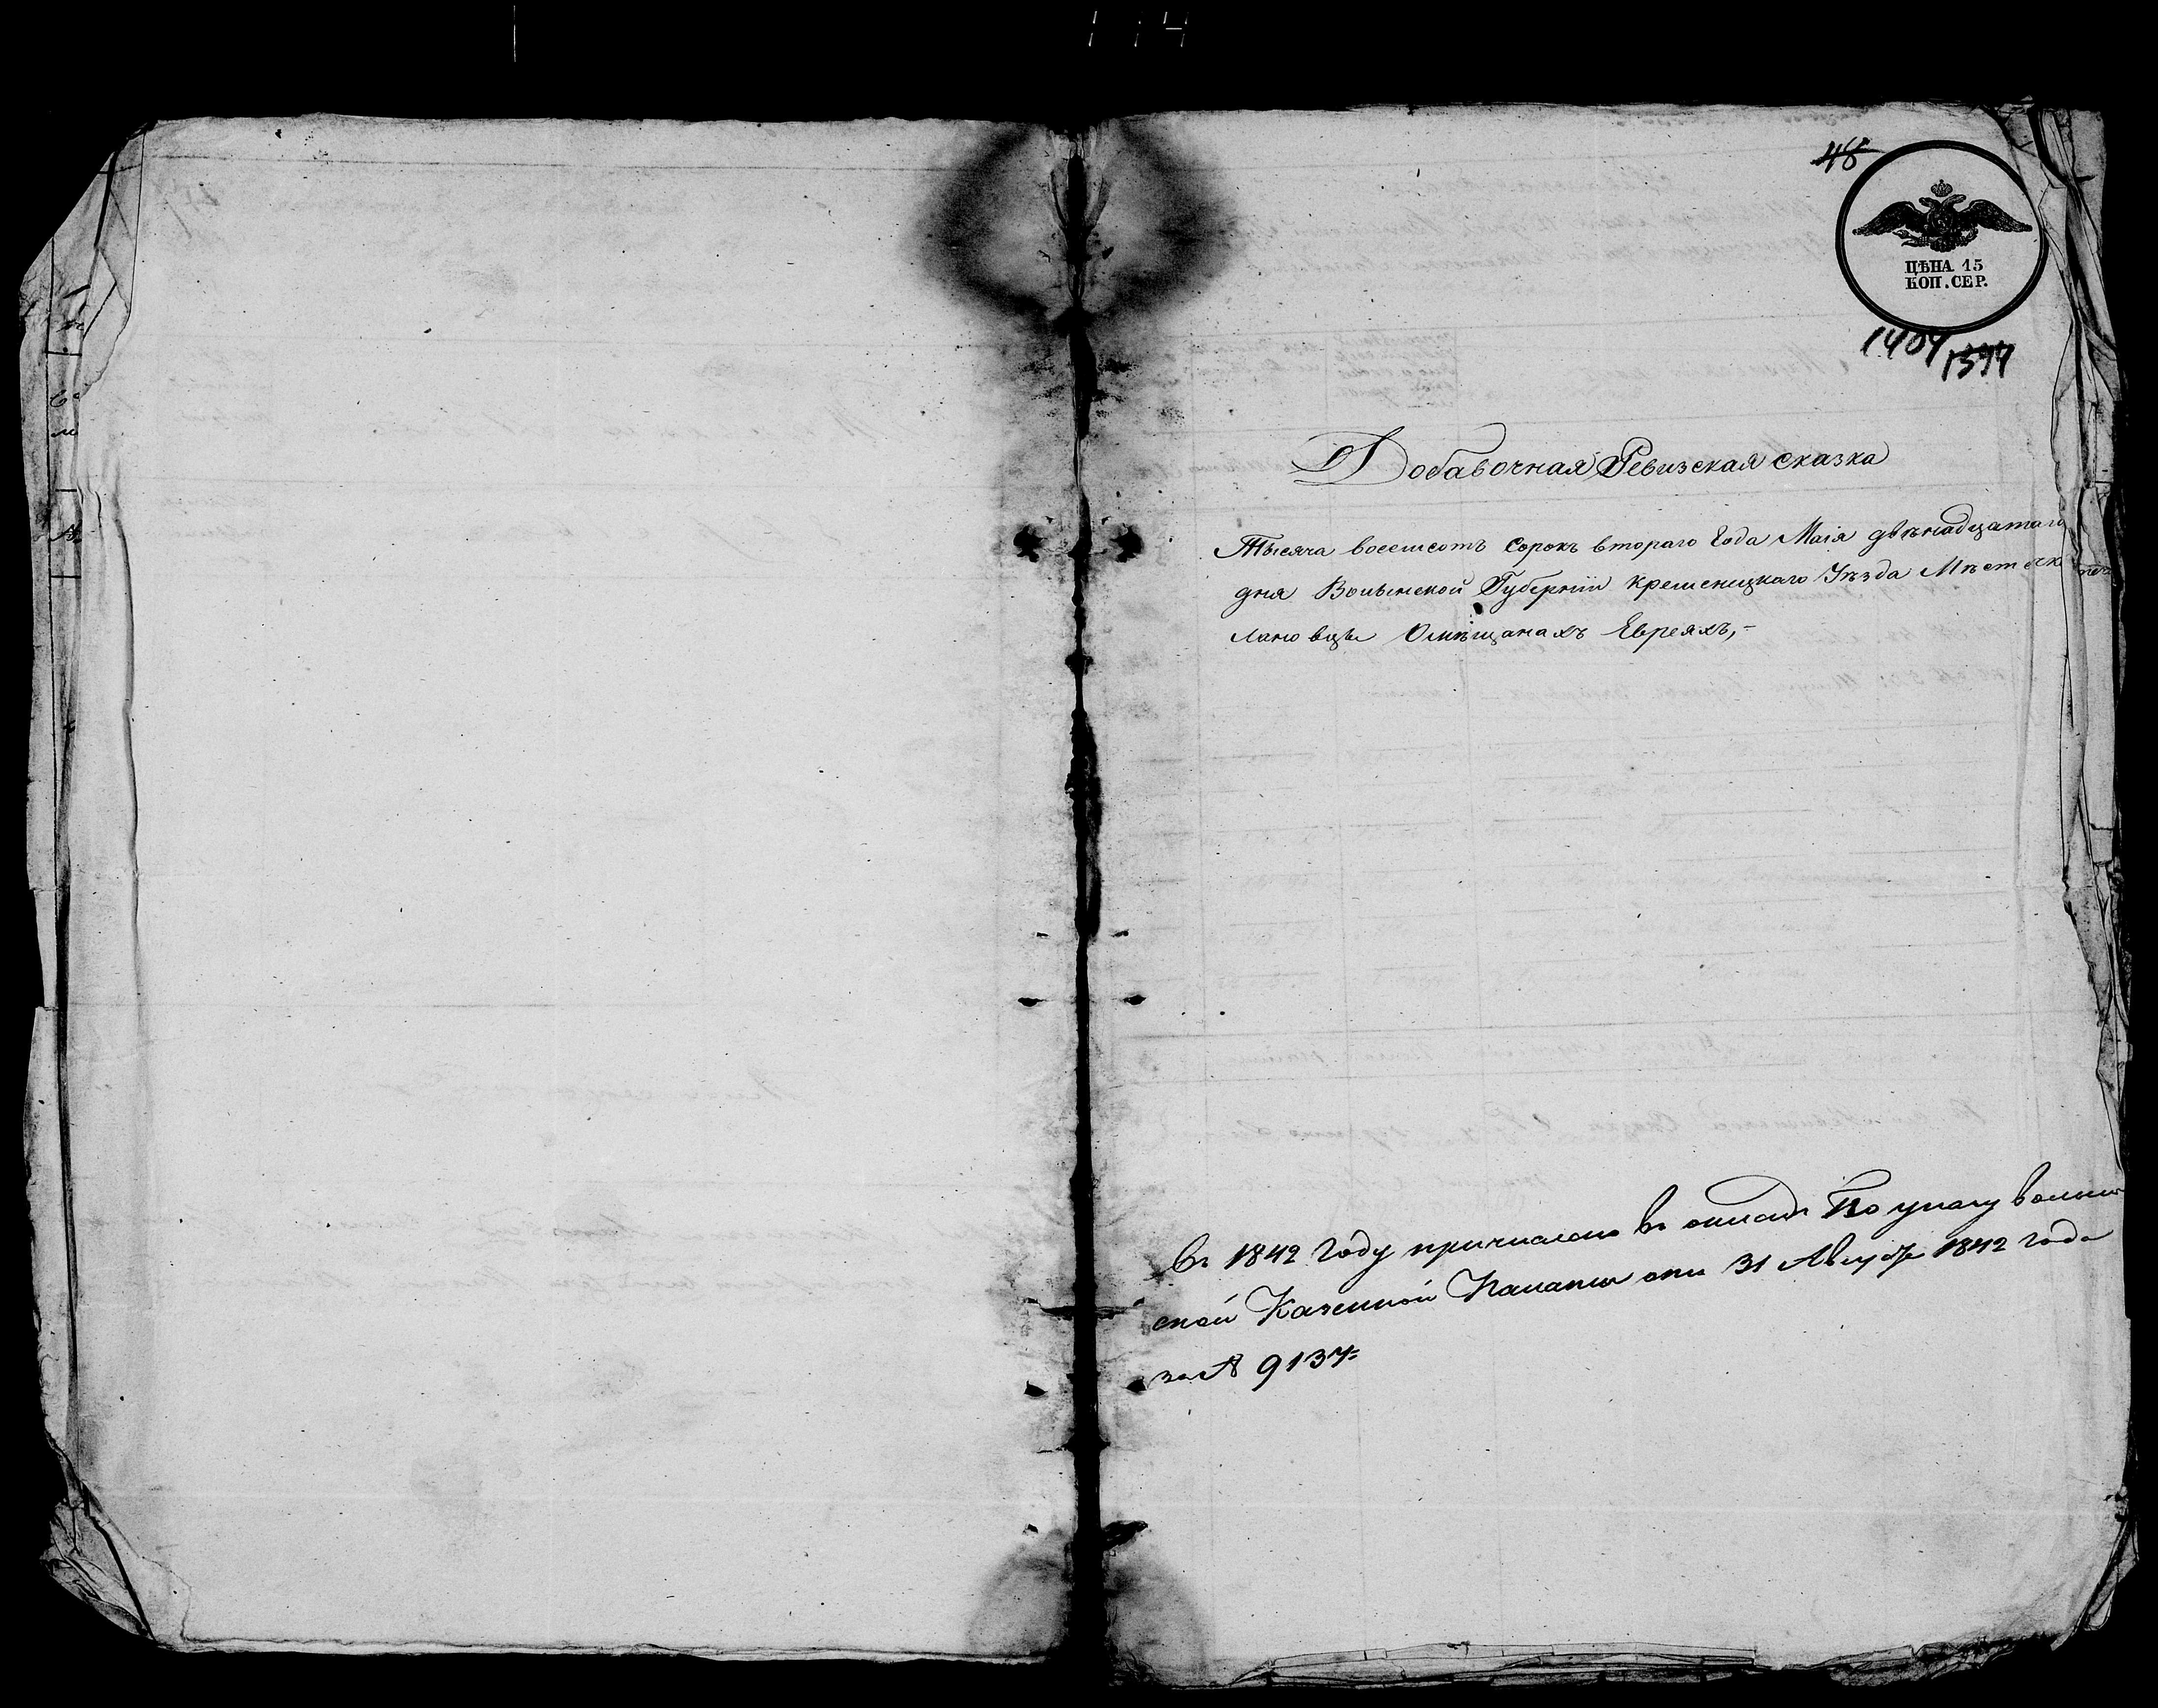 48
ЦѢНА 15
КОП. СЕР.
1404 1394
Добавочная Ревизская сказка
Тысяча восемсотъ сорокъ втораго Года Маія двѣнадцатаго
дня Волынской Губерніи Кременецкаго Уѣзда Мѣстечка
Лановецъ О мѣщанахъ Евреяхъ,-
Въ 1842 Году причислено въ окладъ По указу волын
ской Казенной Палаты отъ 31 Августа 1842 года
за № 9137